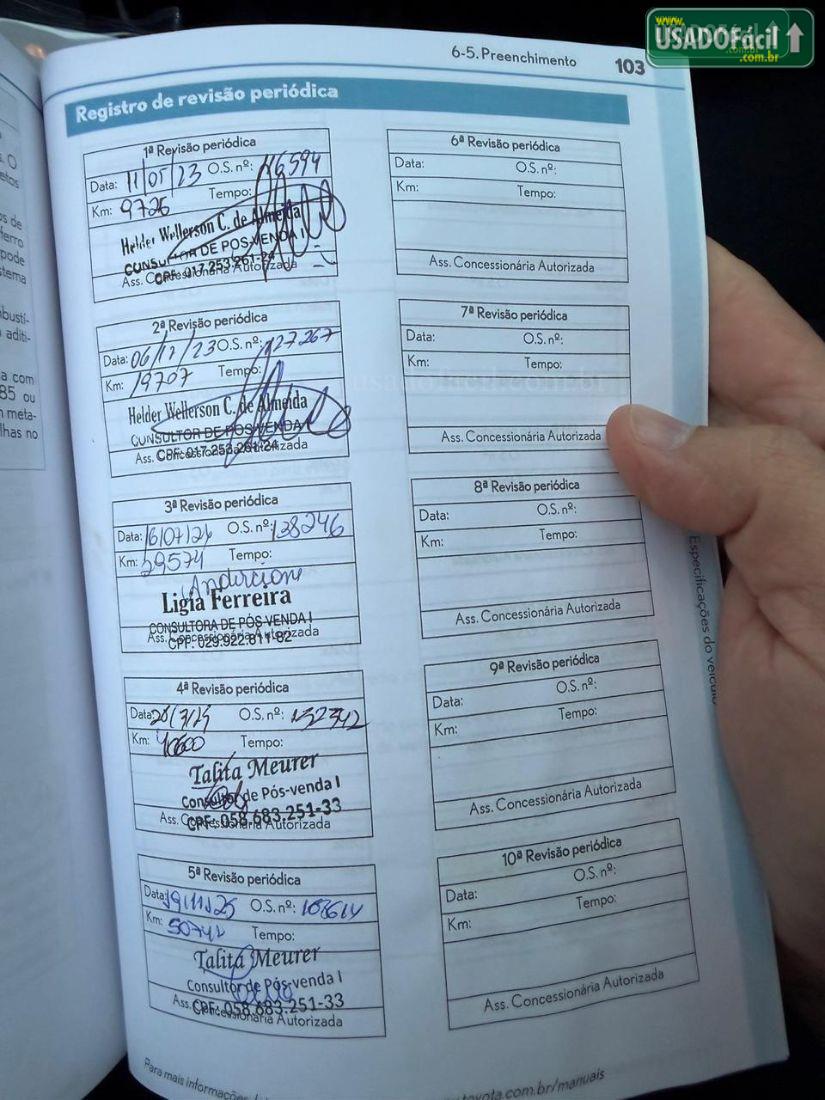 www.
USADOFácil
.com.br
6-5. Preenchimento 103
Registro de revisão periódica
1ª Revisão periódica
Data: 11/05/23 O.S. nº: 116594
Km: 9726 Tempo:
Helder Wellerson C. de Almeida
CONSULTOR DE PÓS-VENDA I
CPF: 017.253.261-24
Ass. Concessionária Autorizada
2ª Revisão periódica
Data: 06/12/23 O.S. nº: 127267
Km: 19707 Tempo:
Helder Wellerson C. de Almeida
CONSULTOR DE PÓS-VENDA I
CPF: 017.253.261-24
Ass. Concessionária Autorizada
3ª Revisão periódica
Data: 16/07/24 O.S. nº: 138246
Km: 29574 Tempo:
Ligia Ferreira
CONSULTORA DE PÓS VENDA I
CPF: 029.922.811-82
Ass. Concessionária Autorizada
4ª Revisão periódica
Data: O.S. nº: 152342
Km: 40600 Tempo:
Talita Meurer
Consultor de Pós-venda I
CPF: 058.683.251-33
Ass. Concessionária Autorizada
5ª Revisão periódica
Data: 19/11/25 O.S. nº:
Km: Tempo:
Talita Meurer
Consultor de Pós-venda I
CPF: 058.683.251-33
Ass. Concessionária Autorizada
6ª Revisão periódica
Data: O.S. nº:
Km: Tempo:
Ass. Concessionária Autorizada
7ª Revisão periódica
Data: O.S. nº:
Km: Tempo:
usadofacil.com.br
Ass. Concessionária Autorizada
8ª Revisão periódica
Data: O.S. nº:
Km: Tempo:
Ass. Concessionária Autorizada
9ª Revisão periódica
Data: O.S. nº:
Km: Tempo:
Ass. Concessionária Autorizada
10ª Revisão periódica
Data: O.S. nº:
Km: Tempo:
Ass. Concessionária Autorizada
Especificações do veículo
Para mais informações toyota.com.br/manuais